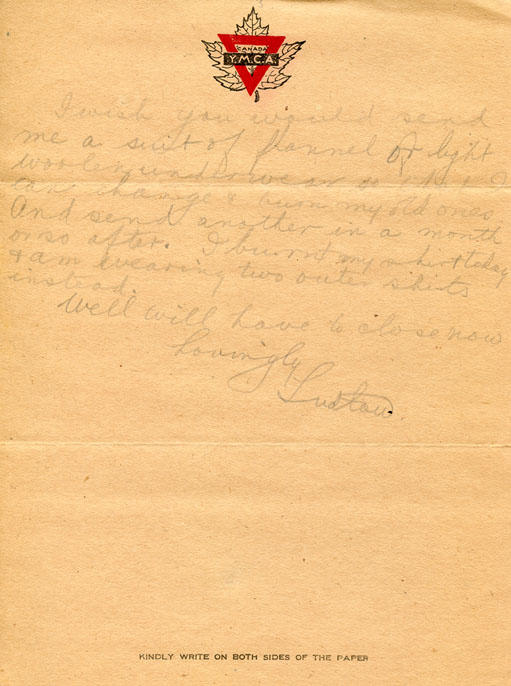 CANADA
Y.M.C.A.
I wish you would send
me a suit of flannel or light
woolen underwear so that I
can change & burn my old ones
And send another in a month
or so after. I burnt my shirt today
& am wearing two outer shirts
instead.
Well will have to close now
Lovingly
KINDLY WRITE ON BOTH SIDES OF THE PAPER